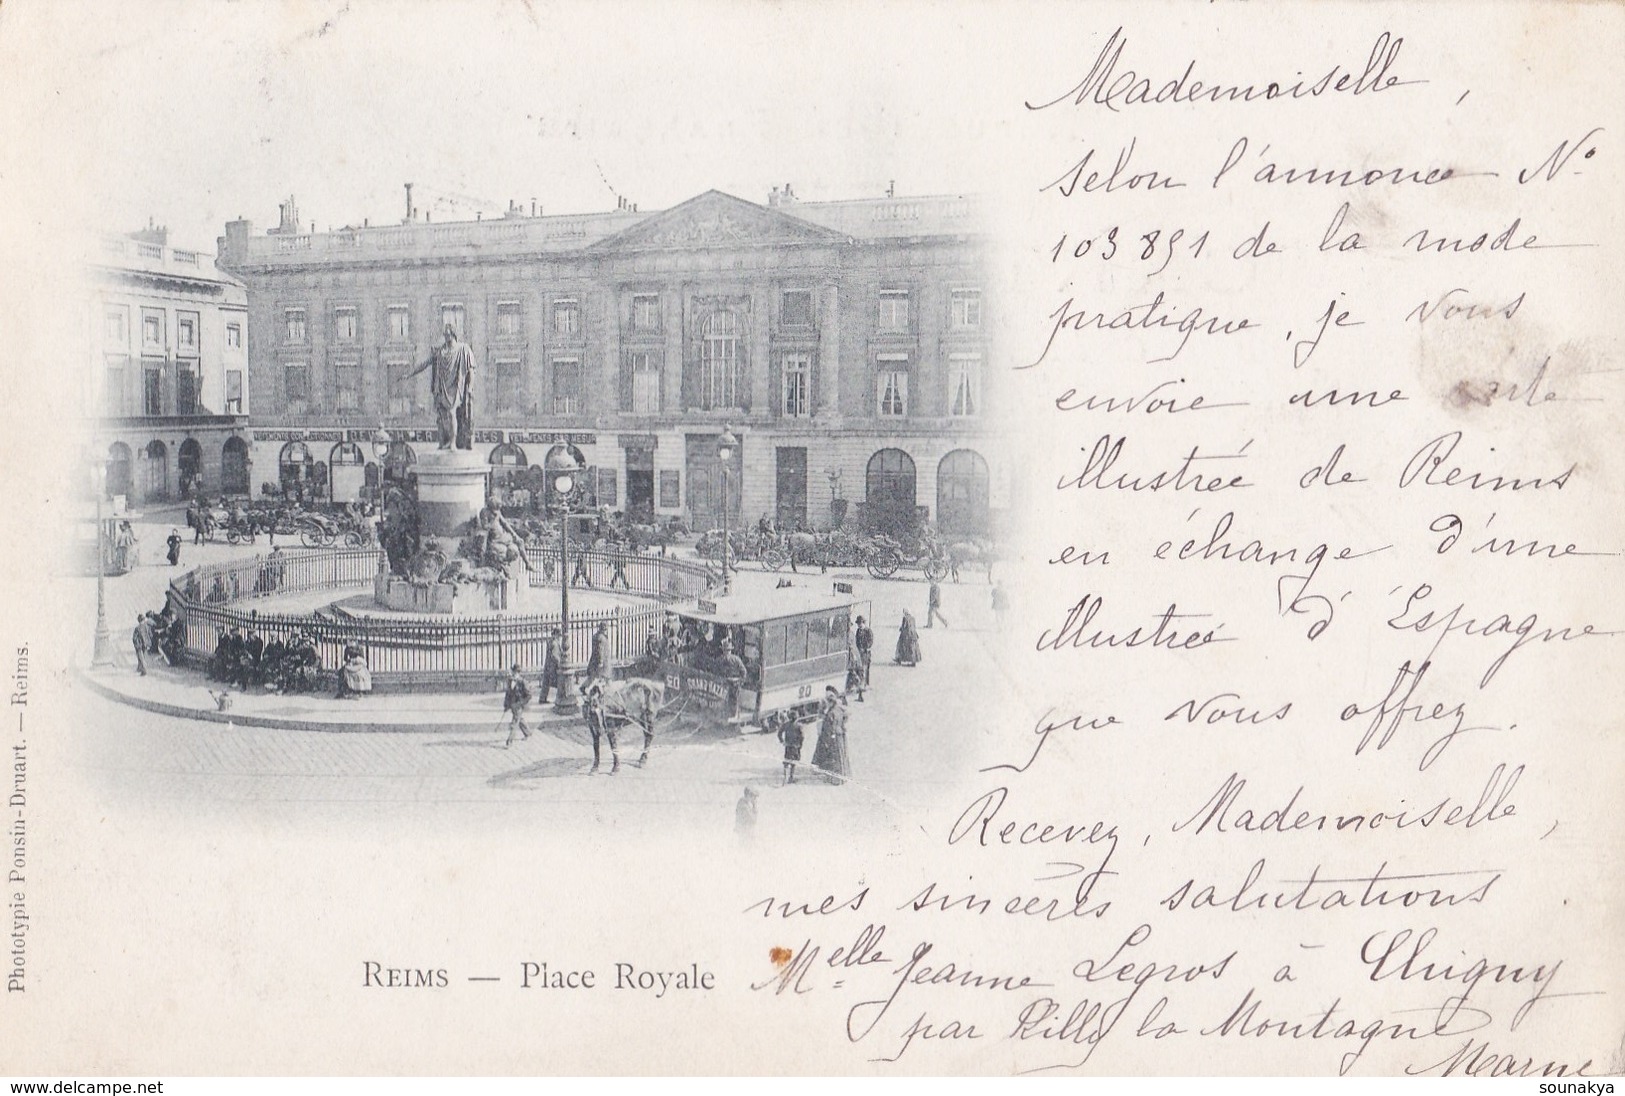 Mademoiselle,
selon l'annonce N°
103891 de la mode
pratique, je vous
envoie une carte
illustrée de Reims
en échange d'une
illustrée d'Espagne
que vous offrez.
Recevez, Mademoiselle,
mes sincères salutations.
Melle Jeanne Legros à Chigny
par Rilly la Montagne
Marne
REIMS — Place Royale
Phototypie Ponsin-Druart. — Reims.
20 GRAND BAZAR
20
delcampe.net
sounakya